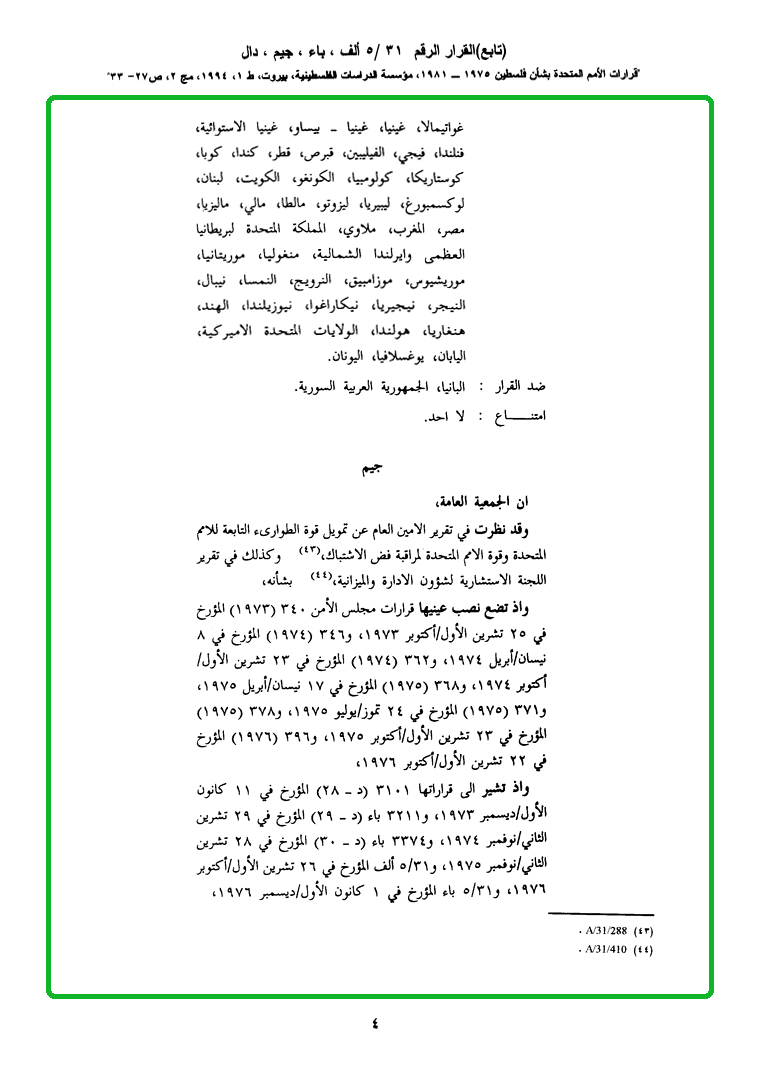 (تابع)القرار الرقم ٣١ /٥ ألف ، باء ، جيم ، دال
"قرارات الأمم المتحدة بشأن فلسطين ١٩٧٥ ــ ١٩٨١، مؤسسة الدراسات الفلسطينية، بيروت، ط ١، ١٩٩٤، مج ٢، ص٢٧- ٣٣"
غواتيمالا، غينيا، غينيا ـ بيساو، غينيا الاستوائية،
فنلندا، فيجي، الفيليبين، قبرص، قطر، كندا، كوبا،
كوستاريكا، كولومبيا، الكونغو، الكويت، لبنان،
لوكسمبورغ، ليبيريا، ليزوتو، مالطا، مالي، ماليزيا،
مصر، المغرب، ملاوي، المملكة المتحدة لبريطانيا
العظمى وايرلندا الشمالية، منغوليا، موريتانيا،
موريشيوس، موزامبيق، النرويج، النمسا، نيبال،
النيجر، نيجيريا، نيكاراغوا، نيوزيلندا، الهند،
هنغاريا، هولندا، الولايات المتحدة الاميركية،
اليابان، يوغسلافيا، اليونان.
ضد القرار : البانيا، الجمهورية العربية السورية.
امتنـــــاع : لا احد.
جيم
ان الجمعية العامة،
وقد نظرت في تقرير الامين العام عن تمويل قوة الطوارىء التابعة للامم
المتحدة وقوة الامم المتحدة لمراقبة فض الاشتباك،(٤٣) وكذلك في تقرير
اللجنة الاستشارية لشؤون الادارة والميزانية،(٤٤) بشأنه،
واذ تضع نصب عينيها قرارات مجلس الأمن ٣٤٠ (١٩٧٣) المؤرخ
في ٢٥ تشرين الأول/أكتوبر ١٩٧٣، و٣٤٦ (١٩٧٤) المؤرخ في ٨
نيسان/أبريل ١٩٧٤، و٣٦٢ (١٩٧٤) المؤرخ في ٢٣ تشرين الأول/
أكتوبر ١٩٧٤، و٣٦٨ (١٩٧٥) المؤرخ في ١٧ نيسان/أبريل ١٩٧٥،
و٣٧١ (١٩٧٥) المؤرخ في ٢٤ تموز/يوليو ١٩٧٥، و٣٧٨ (١٩٧٥)
المؤرخ في ٢٣ تشرين الأول/أكتوبر ١٩٧٥، و٣٩٦ (١٩٧٦) المؤرخ
في ٢٢ تشرين الأول/أكتوبر ١٩٧٦،
واذ تشير الى قراراتها ٣١٠١ (د ـ ٢٨) المؤرخ في ١١ كانون
الأول/ديسمبر ١٩٧٣، و٣٢١١ باء (د ـ ٢٩) المؤرخ في ٢٩ تشرين
الثاني/نوفمبر ١٩٧٤، و٣٣٧٤ باء (د ـ ٣٠) المؤرخ في ٢٨ تشرين
الثاني/نوفمبر ١٩٧٥، و٥/٣١ ألف المؤرخ في ٢٦ تشرين الأول/أكتوبر
١٩٧٦، و٥/٣١ باء المؤرخ في ١ كانون الأول/ديسمبر ١٩٧٦،
(٤٣) A/31/288 .
(٤٤) A/31/410 .
٤